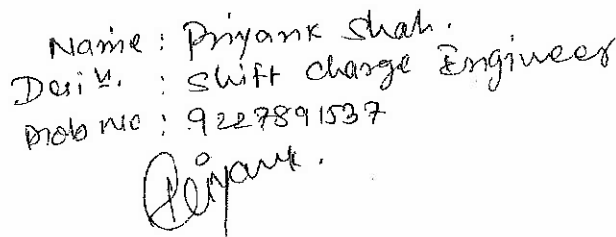 Name : Priyank Shah.
Desig. : Shift charge Engineer
Mob no : 9227891537
Priyank.